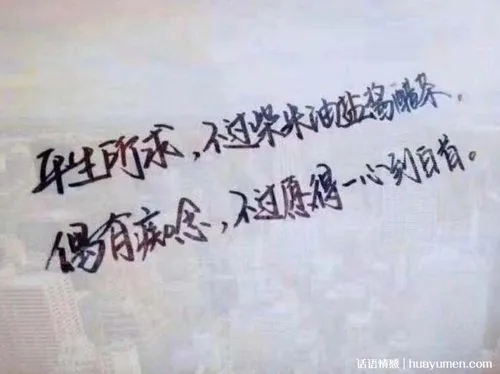 平生所求，不过柴米油盐酱醋茶.
偶有痴念，不过愿得一心到白首。
话语情感 | huayumen.com